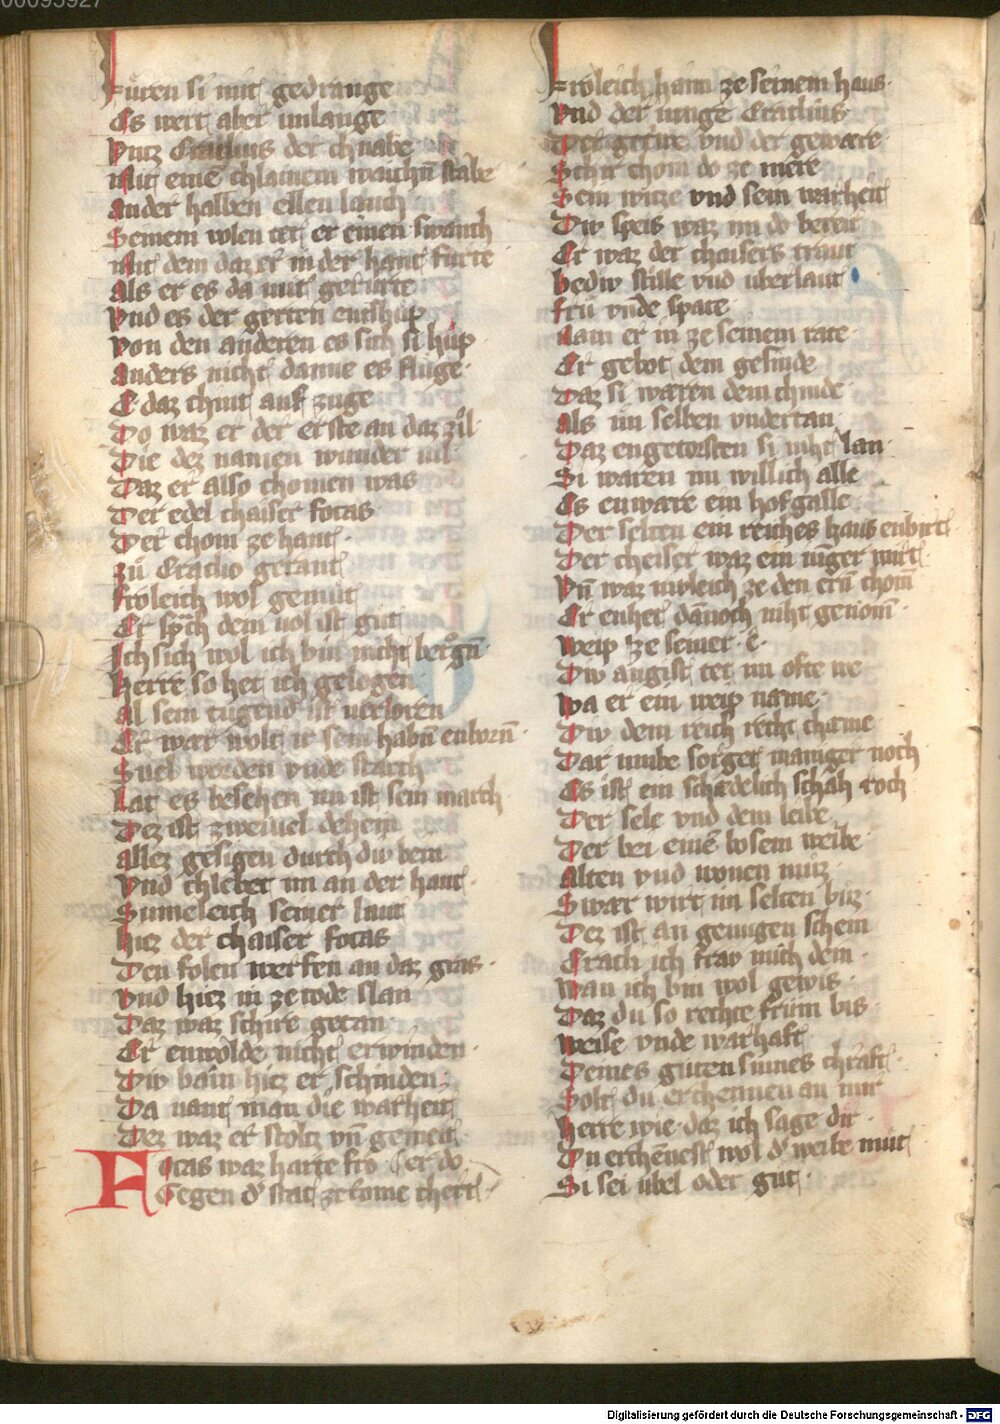 00095927
Fuͤren si mit gedrange
Es wert aber unlange
Vntz Eraclius der chnabe
Mit einē chlainem
ander halben ellen lanch
Seinem volen tet er einen swanch
Mit dem daz er in der hant furte
Als er es da mit gerurte
Vnd es der gerten
Von den anderen es sich
Anders nicht danne es fluge
E daz chint auf zuge
Do waz er der erste an daz zil
Die dez namen wunder vil
Daz er also chomen was
Der edel chaiser focas
Der chom ze hant
zu Eraclio gerant
froleich wol gemut
Er sprach dem uol ist gut
Ich sich wol ich bin nicht betrogn̄
herre so het ich gelogen
al sein tugend ist verloren
Er war wolt ir sein habn̄ enborn̄
Snel werden vnde starch
Lat es besehen nu ist sein march
Dez ist zweiuel dehein
allez gesigen durch diu bein
Vnd chlebet im an der haut
Sumeleich seiner laut
hiez der chaiser focas
Den folen werfen an daz gras
Vnd hiez in ze tode slan
Daz waz schire getan
Er enwolde nicht erwinden
Diw bain hiez er schinden
Da vant man die warheit
Dez waz er stoltz vn̄ gemeit
Focas waz harte fro Cer do
Gegen der stat ze rome chert
Froleich haim ze seinem haus
Vnd der iunge Eraclius
Der getriwe vnd der geware
Schir chom do ze mere
Sein witze vnd sein warheit
Diw speis waz im do bereit
Er waz der chaisers traut
bediw stille vnd uberlaut
fru vnde spate
Nam er in ze seinem rate
Er gebot dem gesinde
Daz si waren dem chinde
Als im selben vndertan
Daz engetorsten si niht lan
Si waren im willich alle
Es enware ein hofgalle
Der selten ein reiches haus enbirt
Der cheiser waz ein iunger wirt
Vn̄ waz niwleich ze den ern̄ chom
Er enhet dānoch niht genom̄
Weip ze seiner e
Diw angist tet im ofte we
Wa er ein weip name
Diw dem reich recht chame
Dar umbe sorget maniger noch
Es ist ein schedelich schach roch
Der sele vnd dem leibe
Der bei einē bosem weibe
Alten vnd wonen muz
Swar wirt im selten buz
Dez ist an genugen schein
Eracli ich fraw mich dein
Wan ich bin wol gewis
Daz du so rechte frum bis
Weise vnde warhaft
Deines guten sinnes chraft
Solt du erchennen an mir
Herre wie daz ich sage dir
Du erchēnest wol d' weibe mut
Si sei ubel oder gut
Digitalisierung gefördert durch die Deutsche Forschungsgemeinschaft - DFG